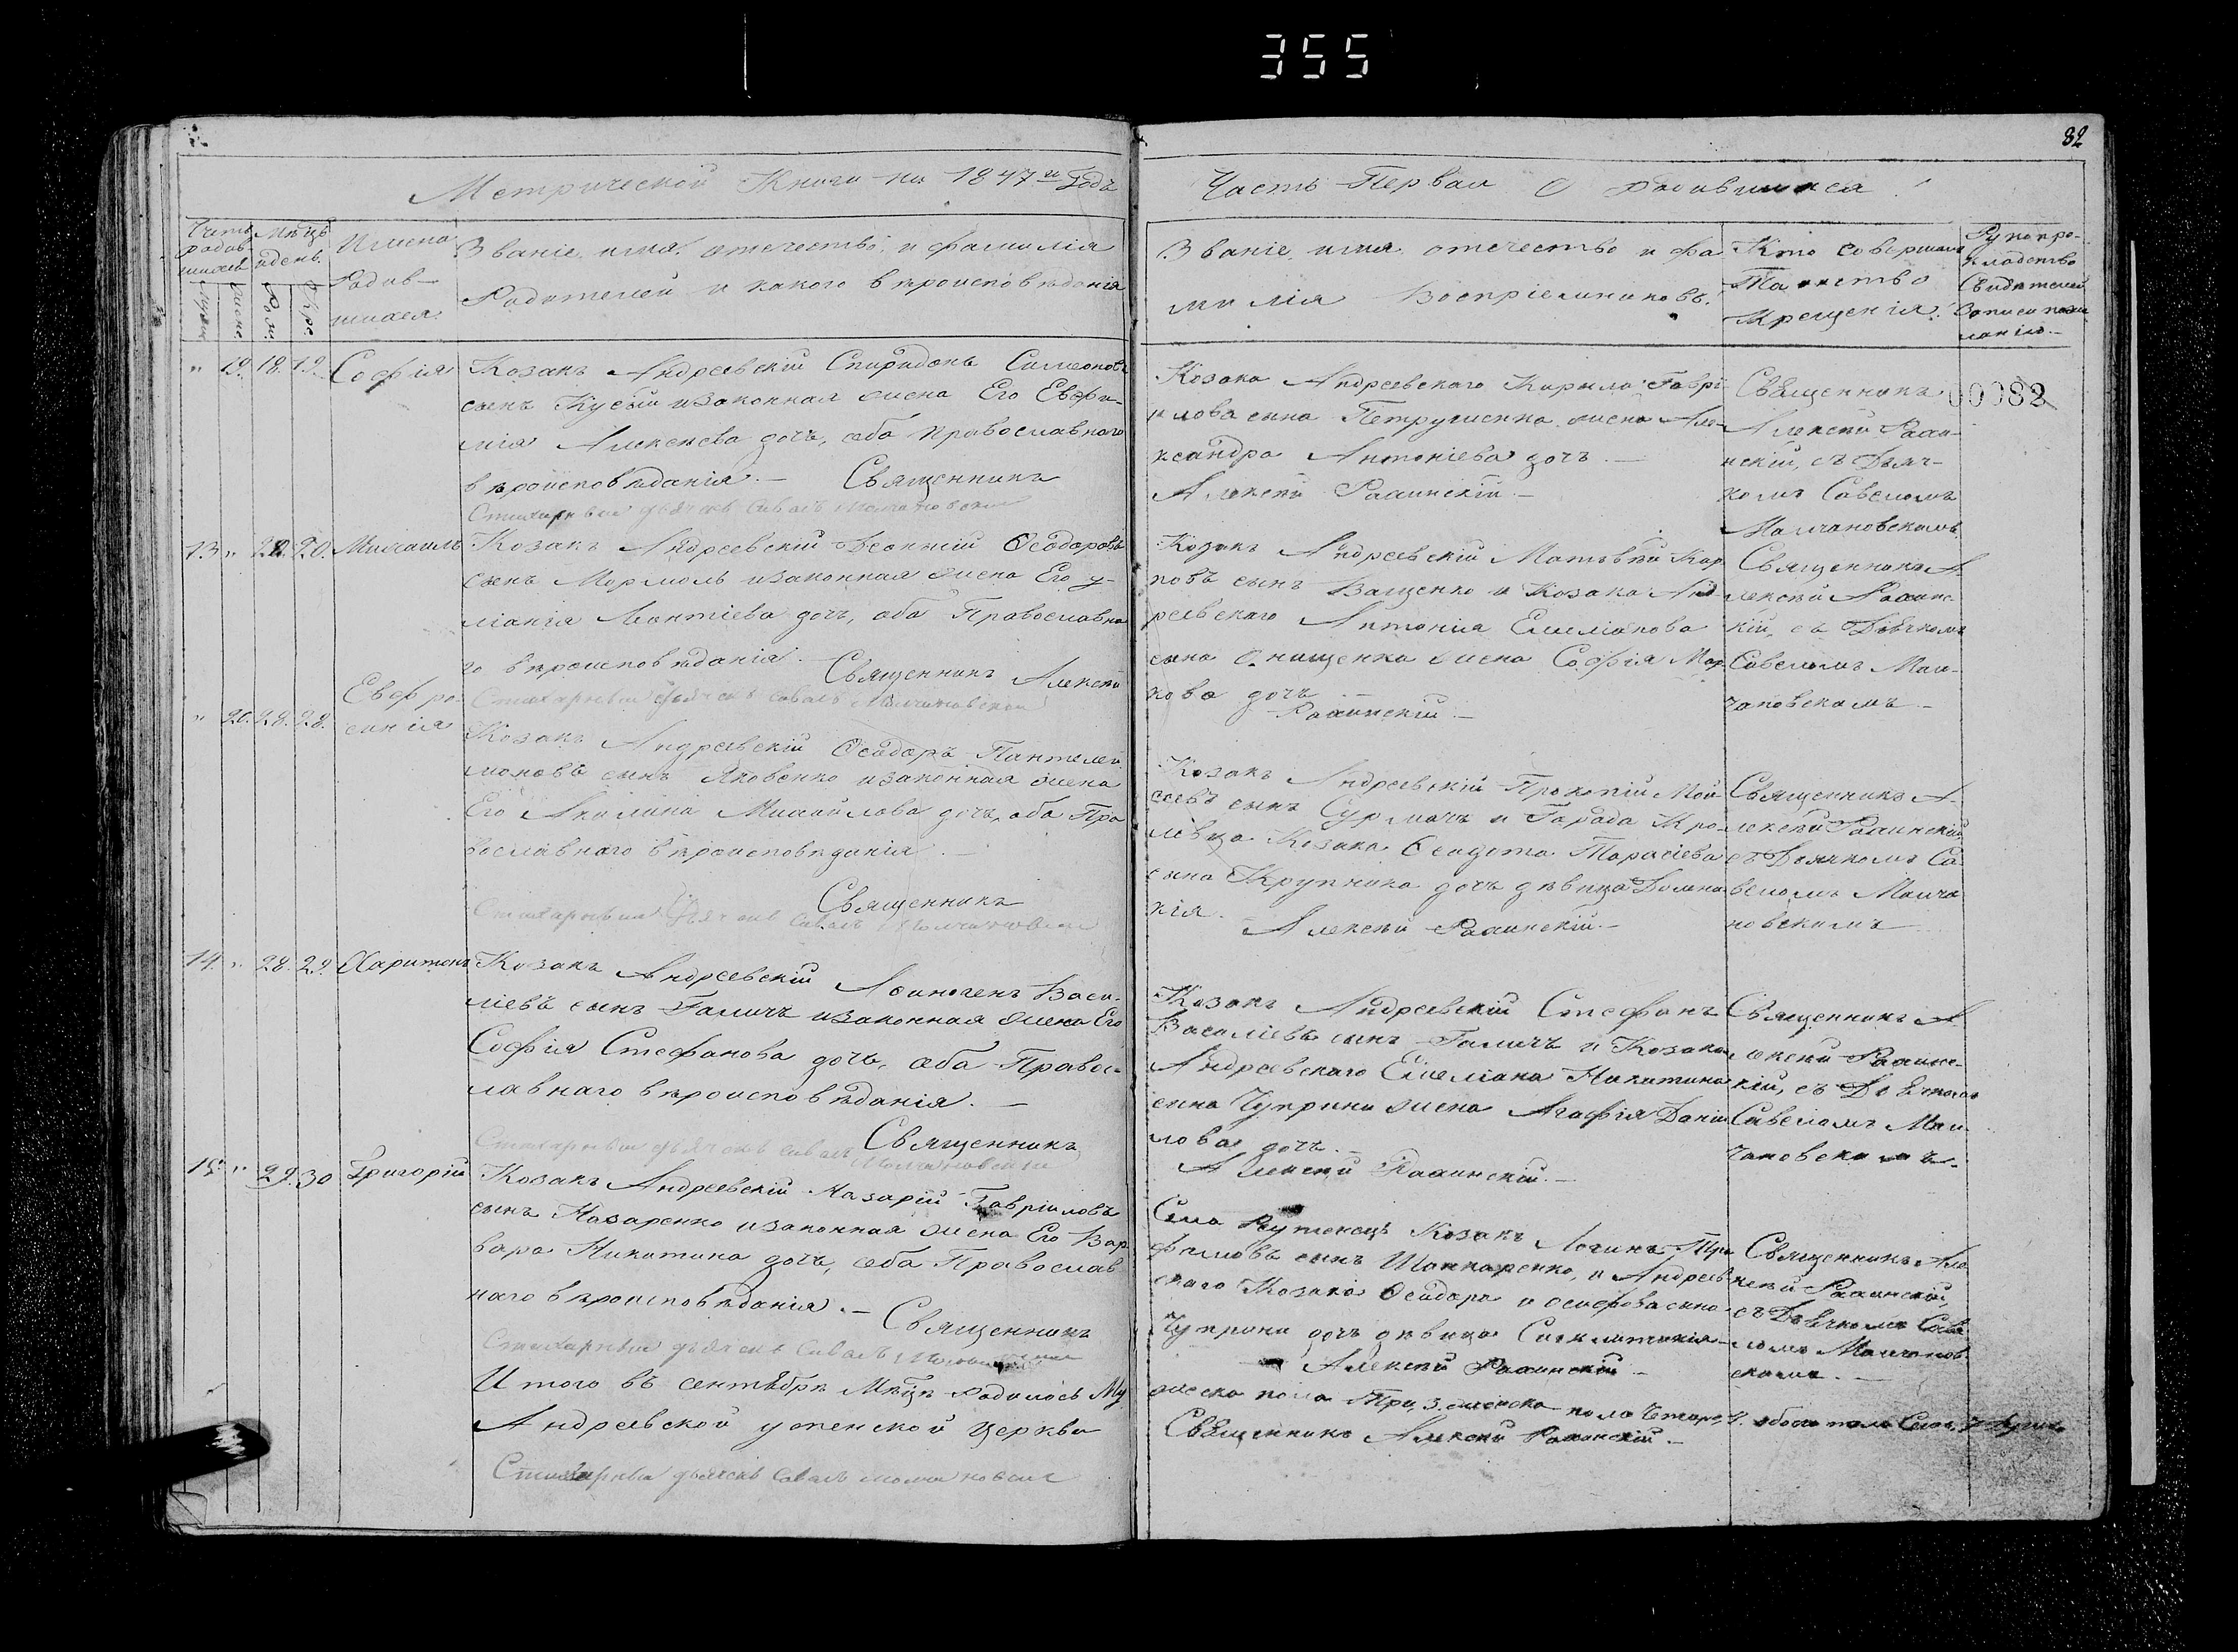 355
82
Метрической Книги на 1847й Годъ
Часть Первая О родившихся
Счетъ родив-
шихся
Мѣцъ
и день.
Муж.
Женс.
Рож.
Кре.
Имена
Родив-
шихся.
Званіе, имя, отечество, и фамилія
Родителей и какого вѣроисповѣданія
Званіе, имя, отечество и фа
милія Воспріемниковъ.
Кто совершалъ
Таинство
Крещенія.
Рукопри-
кладство
Свидѣтелей
записи
" 19. 18. 19. Софія
Козакъ Андреевскій Спиридонъ Симеоновъ
сынъ Кусый и законная жена Его Евфи-
мія Алексеева дочь, оба православнаго
вѣроисповѣданія. — Священникъ
Стихарный дьячокъ Савелъ Молчановский
Козака Андреевскаго Кирила Гаврі-
илова сына Петрушенка жена Але-
ксандра Антоніева дочь. —
Алексей Рашинскій. —
Священникъ
Алексей Раши-
нскій, съ Дьяч-
комъ Савеломъ
Малчановскимъ
00082
13. " 20. Михаилъ
Козакъ Андреевскій Леонтій Ѳеодоровъ
сынъ Мормоль и законная жена Его у-
ліанія Леонтіева дочь, оба Православна
го вѣроисповѣданія. — Священникъ Алексей
Стихарный дьячокъ Савелъ Молчановский
Козакъ Андреевскій Матвѣй Кар
повъ сынъ Ващенко и Козака Анд-
реевскаго Антонія Емеліанова
сына Онищенка жена Софія Мар-
кова дочь. —
Рашинскій. —
Священникъ А-
лексей Рашинс-
кій, съ Дьячкомъ
Савеломъ Мал-
чановскимъ. —
" 20. 28. 28. Евфро-
синія
Козакъ Андреевскій Ѳеодоръ Пантелей
моновъ сынъ Яковенко и законная жена
Его Акилина Михайлова дочь, оба Пра
вославнаго вѣроисповѣданія. —
Священникъ
Стихарный Дьячокъ Савелъ Молчановский
Козакъ Андреевскій Прокопій Мой-
сеевъ сынъ Сурмачъ и Города Кро-
левца Козака Ѳеодота Тарасіева
сына Крупника дочь дѣвица Домни
кія.
Алексей Рашинскій. —
Священникъ А-
лексей Рашинскій
съ Дьячкомъ Са
веломъ Малча
новскимъ
14. " 28. 29. Харитонъ
Козакъ Андреевскій Аѳиногенъ Васи-
ліевъ сынъ Галичъ и законная жена Его
Софія Стефанова дочь, оба Правос-
лавнаго вѣроисповѣданія. —
Священникъ
Стихарный дьячокъ Савелъ Молчановский
Козакъ Андреевскій Стефанъ
Василіевъ сынъ Галичъ и Козака
Андреевскаго Емеліана Никитина
сына Чуприни жена Агафія Даніи
лова дочь. —
Алексей Рашинскій. —
Священникъ А-
лексей Рашинс-
кій, съ Дьячкомъ
Савеломъ Мал
чановскимъ.
15. " 29. 30 Григорій
Козакъ Андреевскій Назарій Гавріиловъ
сынъ Назаренко и законная жена Его Вар
вара Никитина дочь, оба Православ
наго вѣроисповѣданія. — Священникъ
Стихарный дьячокъ Савелъ
Села Козакъ Логинъ Тро
фимовъ сынъ и Андреев-
скаго Козака Ѳеодора Осифова сына
Чуприни дочь дѣвица
Алексей Рашинскій —
Священникъ Але
ксей Рашинскій,
съ Дьячкомъ Саве
ломъ Малчанов-
скимъ. —
Итого въ сентябрѣ Мѣцѣ родилось Му
жеска пола Три, 3. женска пола Четыре, 4. обоего пола Семь, 7 душъ
Андреевской успенской Церкви
Священникъ Алексей Рашинскій. —
Стихарный дьячокъ Савелъ Молчановский